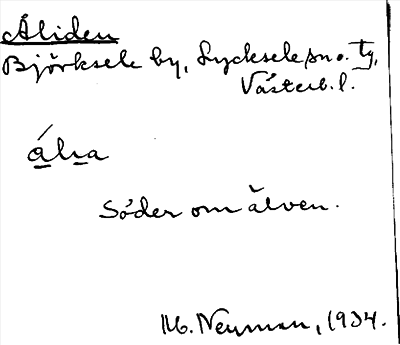 Åliden
Björksele by, Lycksele sn o. tg,
Västerb. l.
ália
Söder om älven.
M. Neuman, 1934.